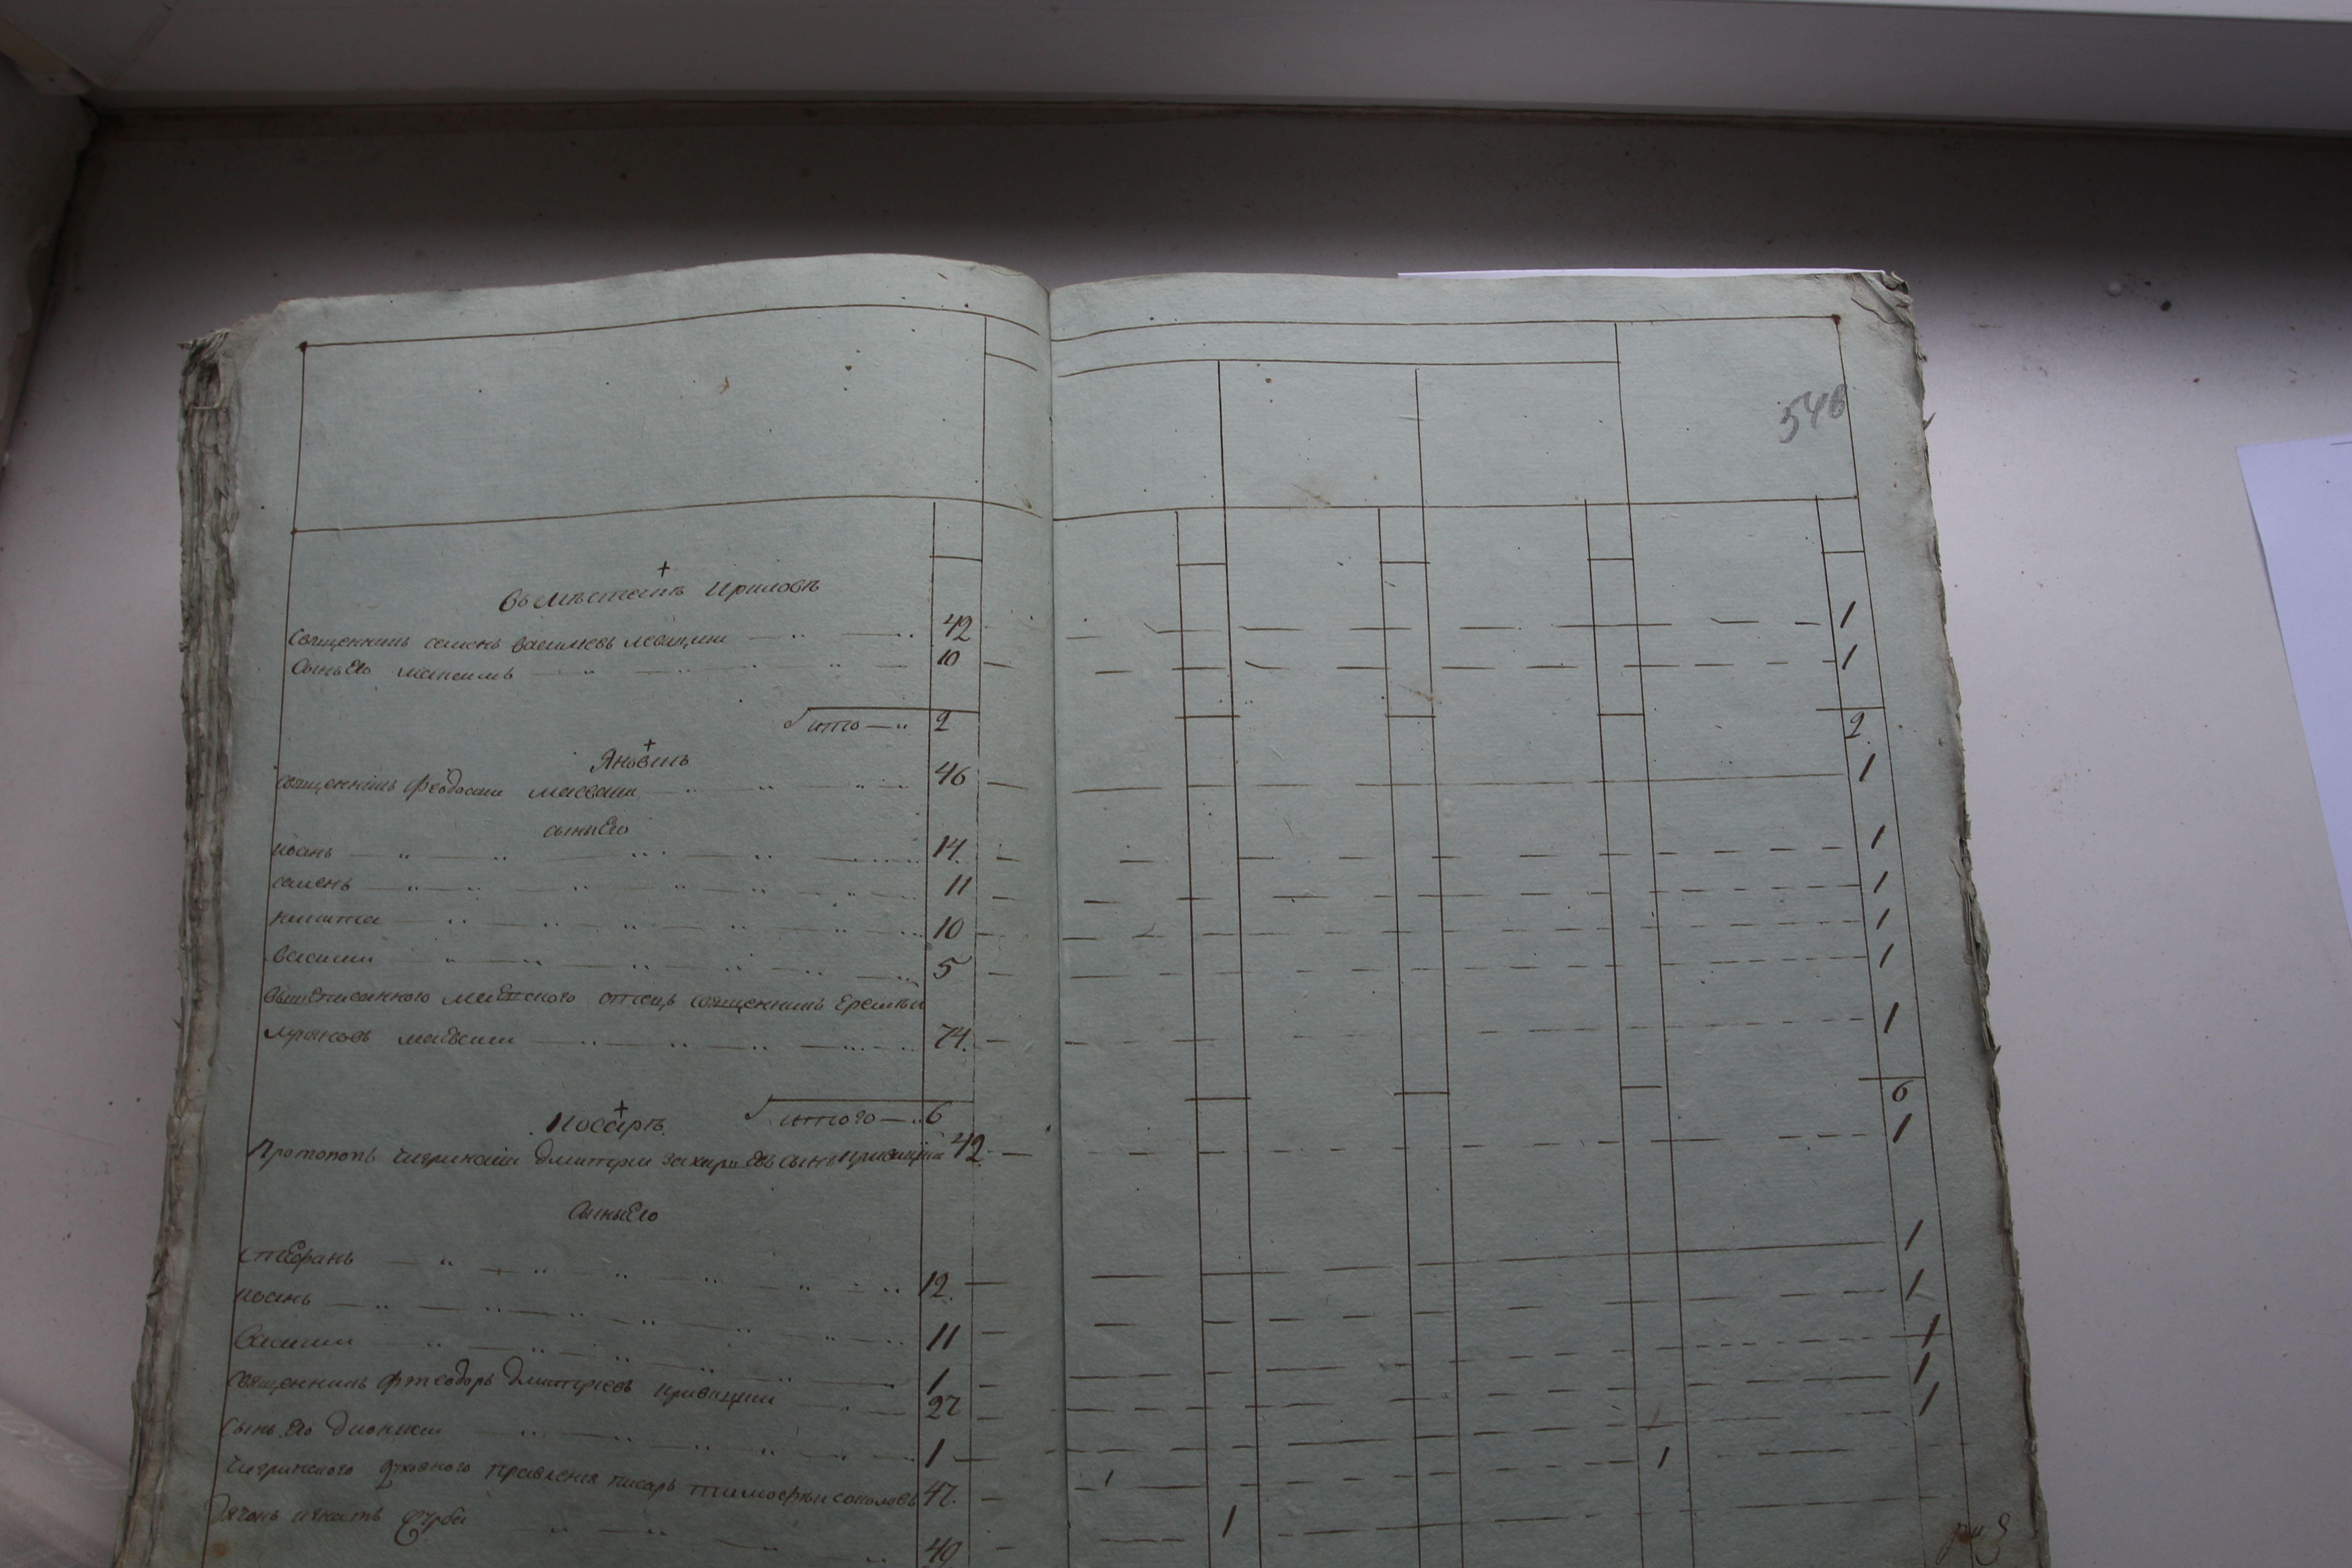 548
въ местечкѣ Криловѣ
Священникъ семенъ василиевъ левицкии 42 1
Сынъ Его максимъ 10 1
итого 2 2
Яновкѣ
священникъ феодосии маевски 46 1
сыны Его
иоанъ 14 1
семенъ 11 1
никита 10 1
василии 5 1
вышеписанного маевского отецъ священникъ Еремѣи
маевски 74 1
итого 6 6
Косарѣ
Протопопъ чигринскии Дмитрии захариевъ сынъ кривицкии 42 1
Сыны Его
стефанъ 12 1
иоанъ 11 1
василии 1 1
священникъ фтеодоръ Дмитриевъ кривицкии 27 1
сынъ Его Дионисии 1 1
Чигринского духовного правления писарь тимофеи соколовъ 47 1
Дячокъ игнатъ 49 1